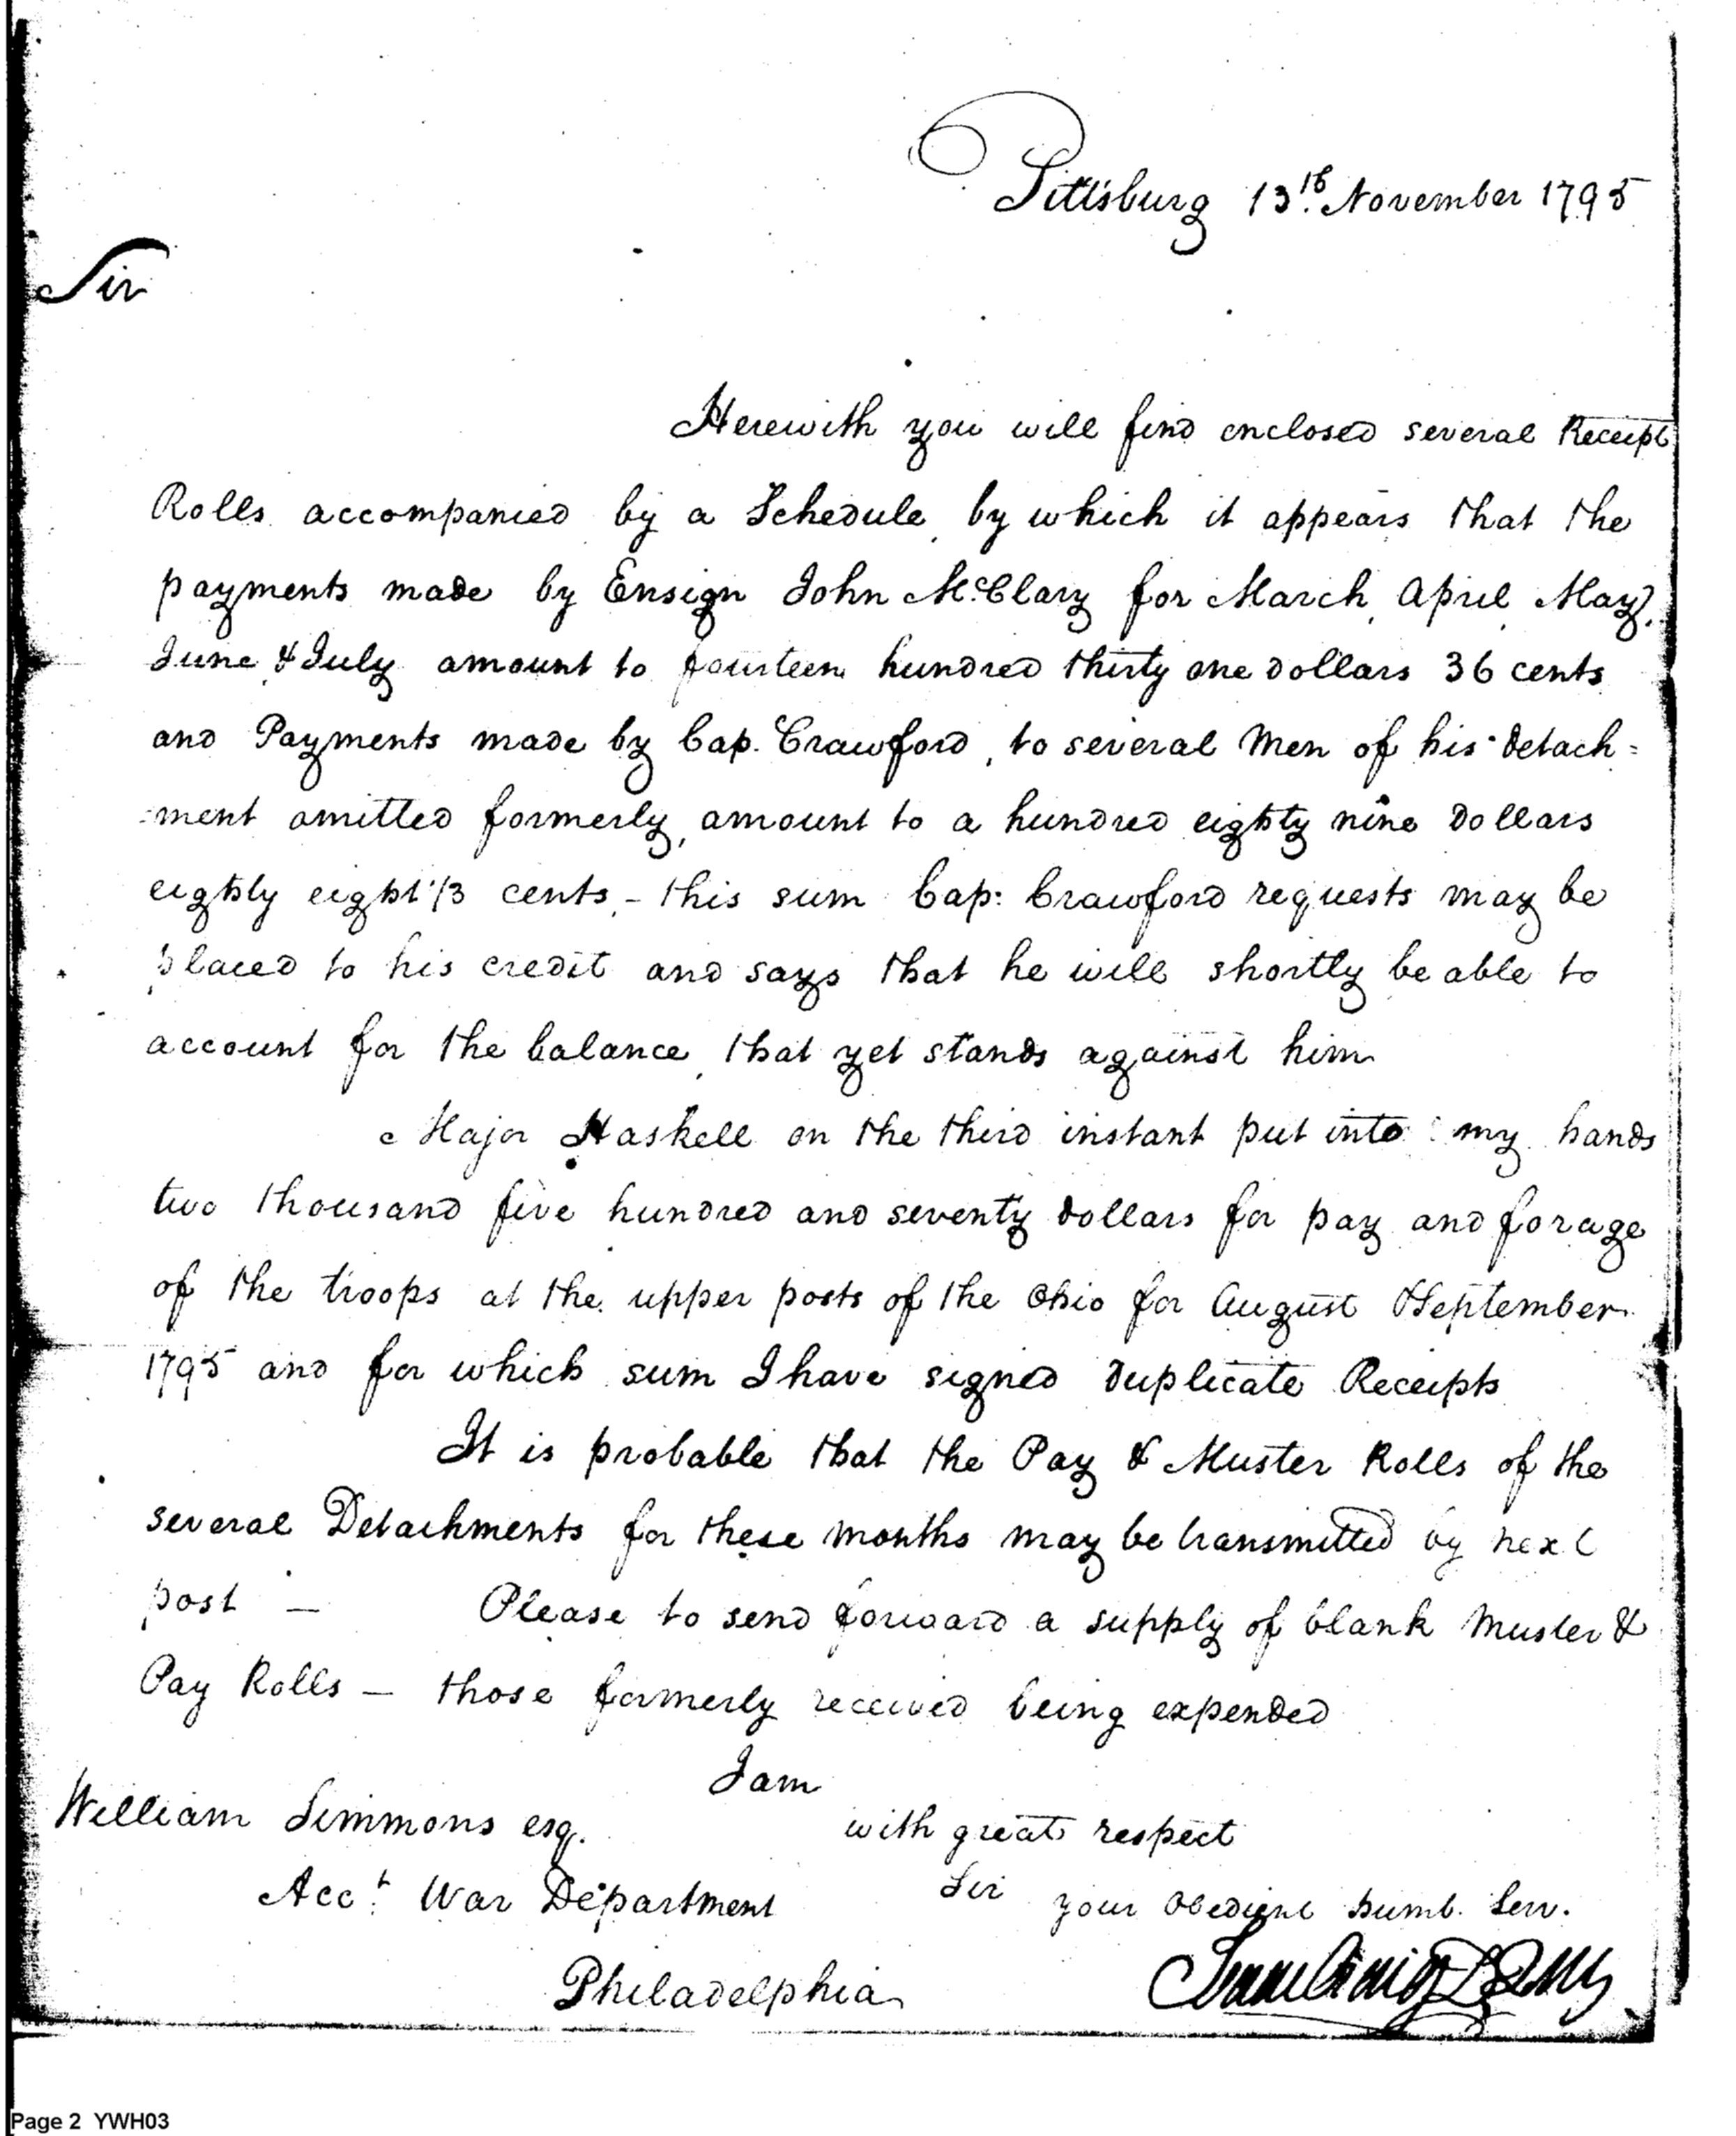 Pittsburg 13th. November 1795
Sir
Herewith you will find enclosed several Receipt
Rolls accompanied by a Schedule, by which it appears that the
payments made by Ensign John McClary for March, April, May,
June, & July amount to fourteen hundred thirty one dollars 36 cents
and Payments made by Cap. Crawford, to several Men of his detach=
=ment omitted formerly, amount to a hundred eighty nine Dollars
eighty eight 1/3 cents, - this sum Cap: Crawford requests may be
placed to his credit and says that he will shortly be able to
account for the balance, that yet stands against him
Major Haskell on the third instant put into my hands
two thousand five hundred and seventy dollars for pay and forage
of the troops at the upper posts of the Ohio for August & September
1795 and for which sum I have signed duplicate Receipts
It is probable that the Pay & Muster Rolls of the
several Detachments for these months may be transmitted by next
post — Please to send forward a supply of blank Muster &
Pay Rolls — those formerly received being expended
I am
William Simmons esq. with great respect
Acct. War Department Sir your Obedient humb. Serv.
Philadelphia Isaac Craig
Page 2 YWH03